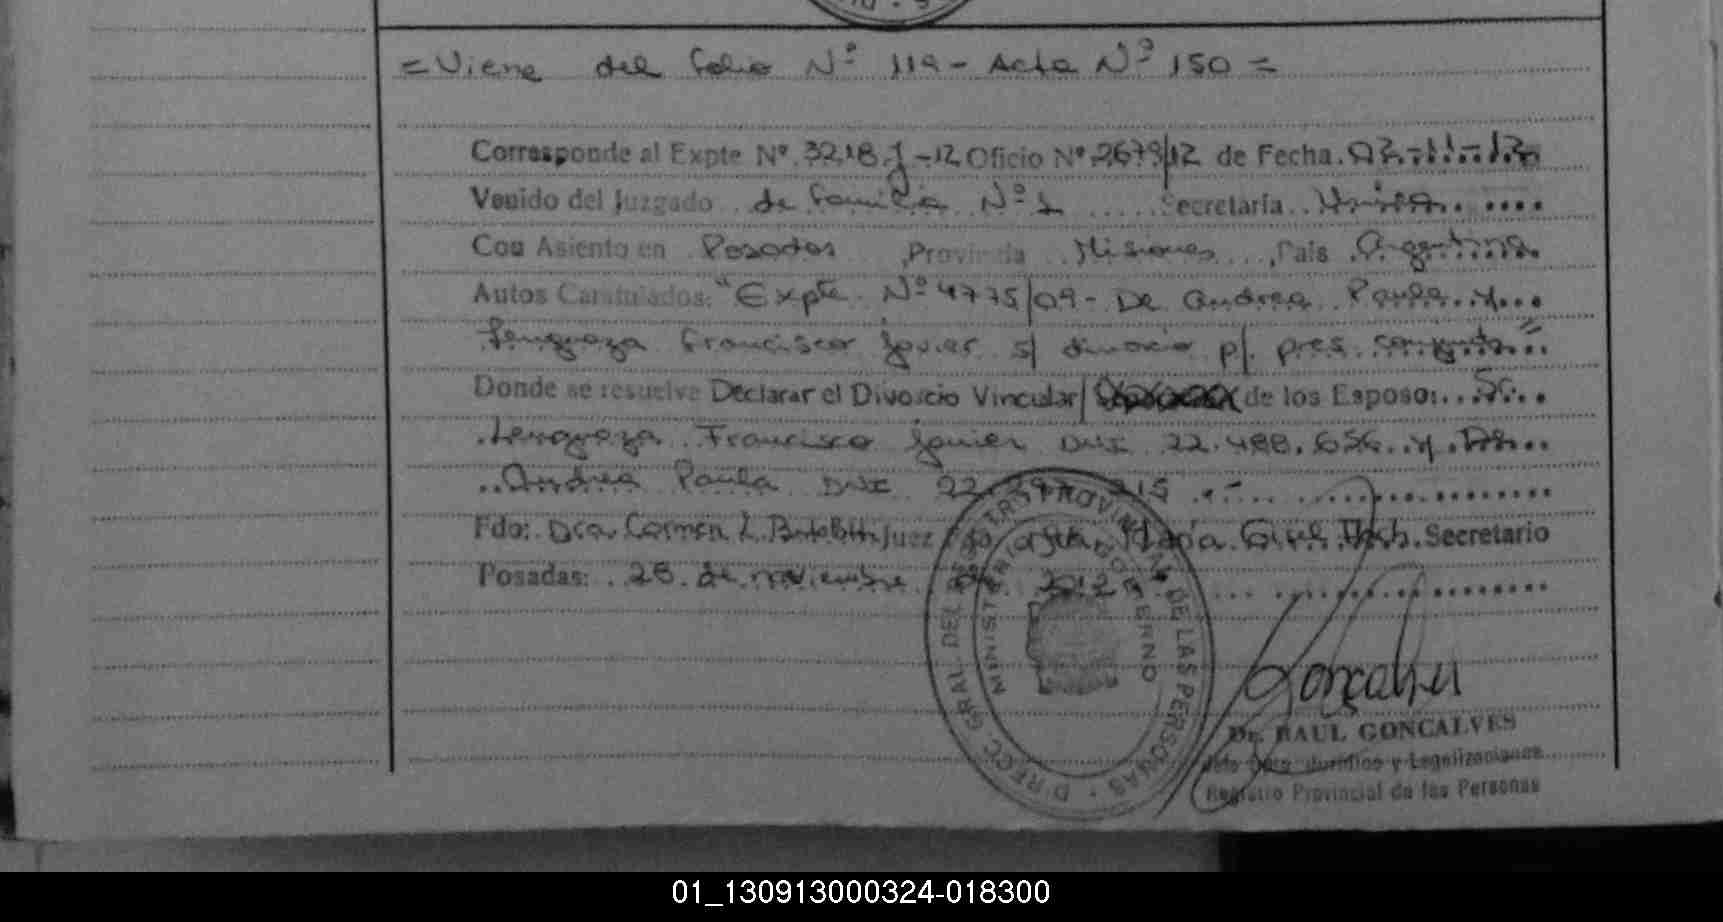 = Viene del folio Nº 119 - Acta Nº 150 =
Corresponde al Expte Nº 3218 J - 12 Oficio Nº 2679/12 de Fecha 02-11-12
Venido del Juzgado de familia Nº 1 Secretaría
Con Asiento en Posadas Provincia Misiones, País Argentina
Autos Caratulados: "Expte. Nº 4775/09 - De Andrea Paula y
Lenguaza Francisco Javier s/ divorcio p/. pres. conjunta"
Donde se resuelve Declarar el Divorcio Vincular/ de los Esposos: Sr.
Lenguaza Francisco Javier DNI 22.488.656 y De
Andrea Paula DNI 22. 215
Fdo: Dra. Carmen L. Juez Secretario
Posadas: 28 de noviembre de 2012
DIREC. GRAL. DEL REGISTRO PROVINCIAL DE LAS PERSONAS
MINISTERIO DE GOBIERNO
Gonçalves
Dr. RAUL GONCALVES
Jefe Dpto. Jurídico y Legalizaciones
Registro Provincial de las Personas
01_130913000324-018300